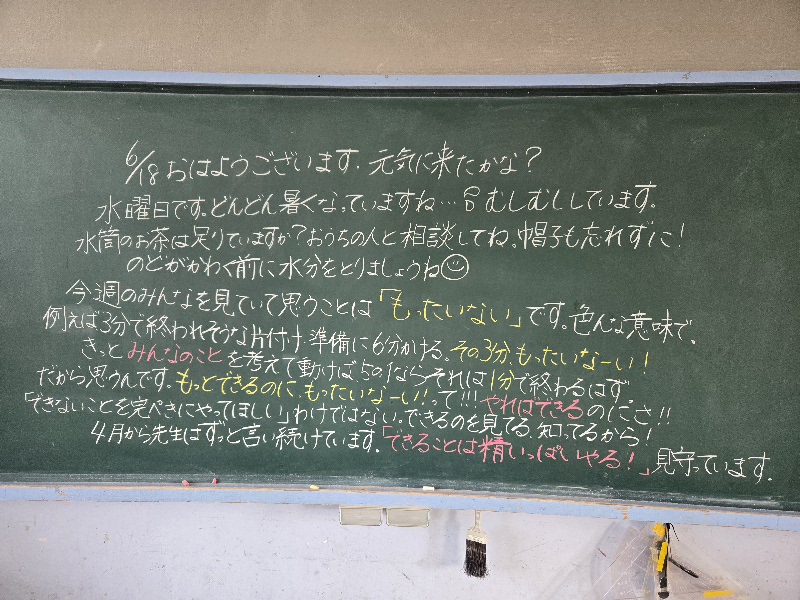 6/18 おはようございます. 元気に来たかな?
水曜日です。どんどん暑くなっていますね… むしむししています。
水筒のお茶は足りていますか?おうちの人と相談してね。帽子も忘れずに!
のどがかわく前に水分をとりましょうね
今週のみんなを見ていて思うことは「もったいない」です。色んな意味で。
例えば3分で終われそうな片付け・準備に6分かける。その3分、もったいなーい!
きっとみんなのことを考えて動けば、5の1ならそれは1分で終わるはず。
だから思うんです。もっとできるのに、もったいなーい!って!!! やればできるのにさ!!
「できないことを完ぺきにやってほしい」わけではない。できるのを見てる、知ってるから!
4月から先生はずっと言い続けています。「できることは精いっぱいやる!」見守っています.